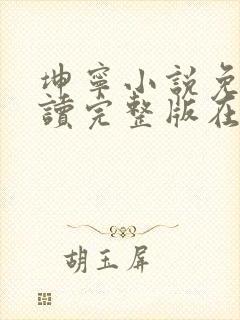 坤寧小說免
讀完整版在
胡玉屏